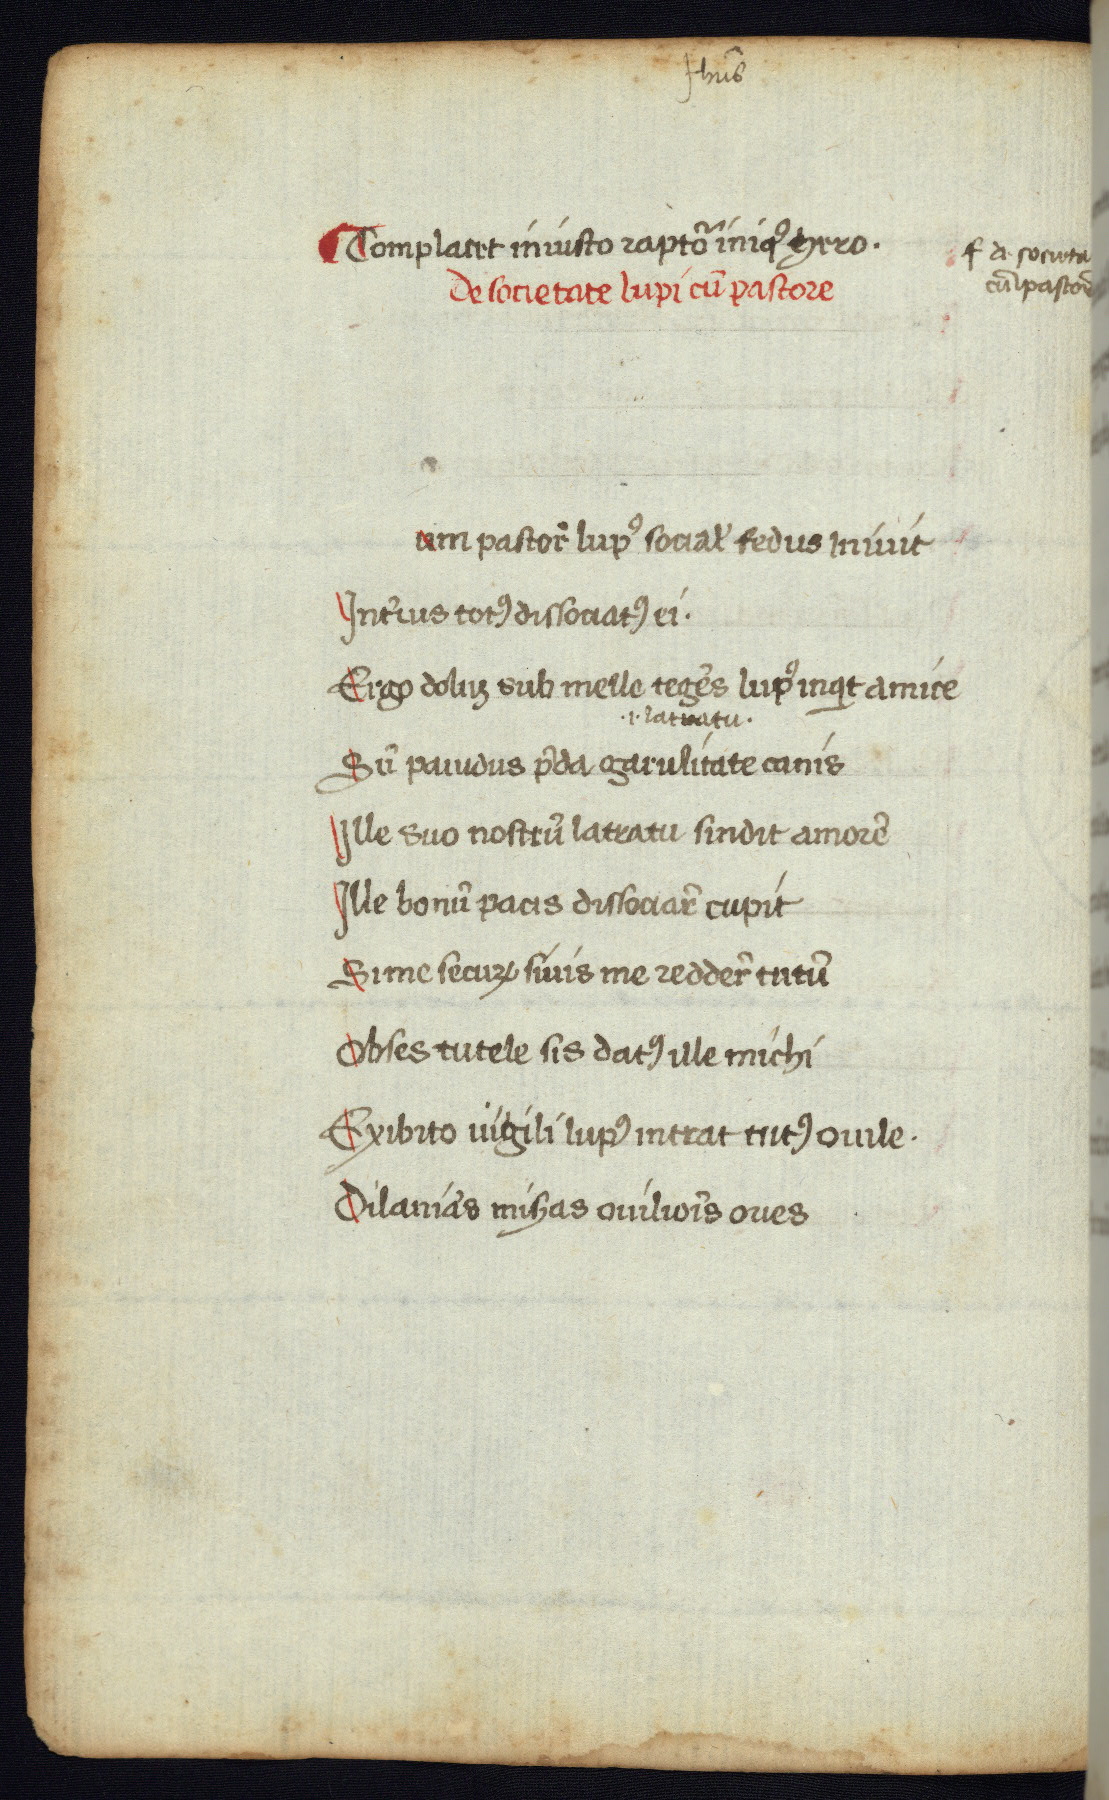 Jhus̄
Complacet iniusto raptōr iniqꝰ hero.
f de societa
cū pastor̄
De societate lupi cū pastore
um pastor̄ lupꝰ sociał fedus iniuit
Int̄ius totꝰ dissociatꝰ ei.
Ergo doluꝫ sub melle tegēs lupꝰ inqͥt amice
.i. latratu.
Sū pauidus p̄da garulitate canis
Ille suo nostrū latratu sindit amorē
Ille bonū pacis dissociar̄ cupit
Si me securꝫ siuis me redder̄ tutū
Obses tutele sis datꝰ ille michi
Exibito uigili lupꝰ intrat tutꝰ ouile.
Dilaniās mis̄as oues